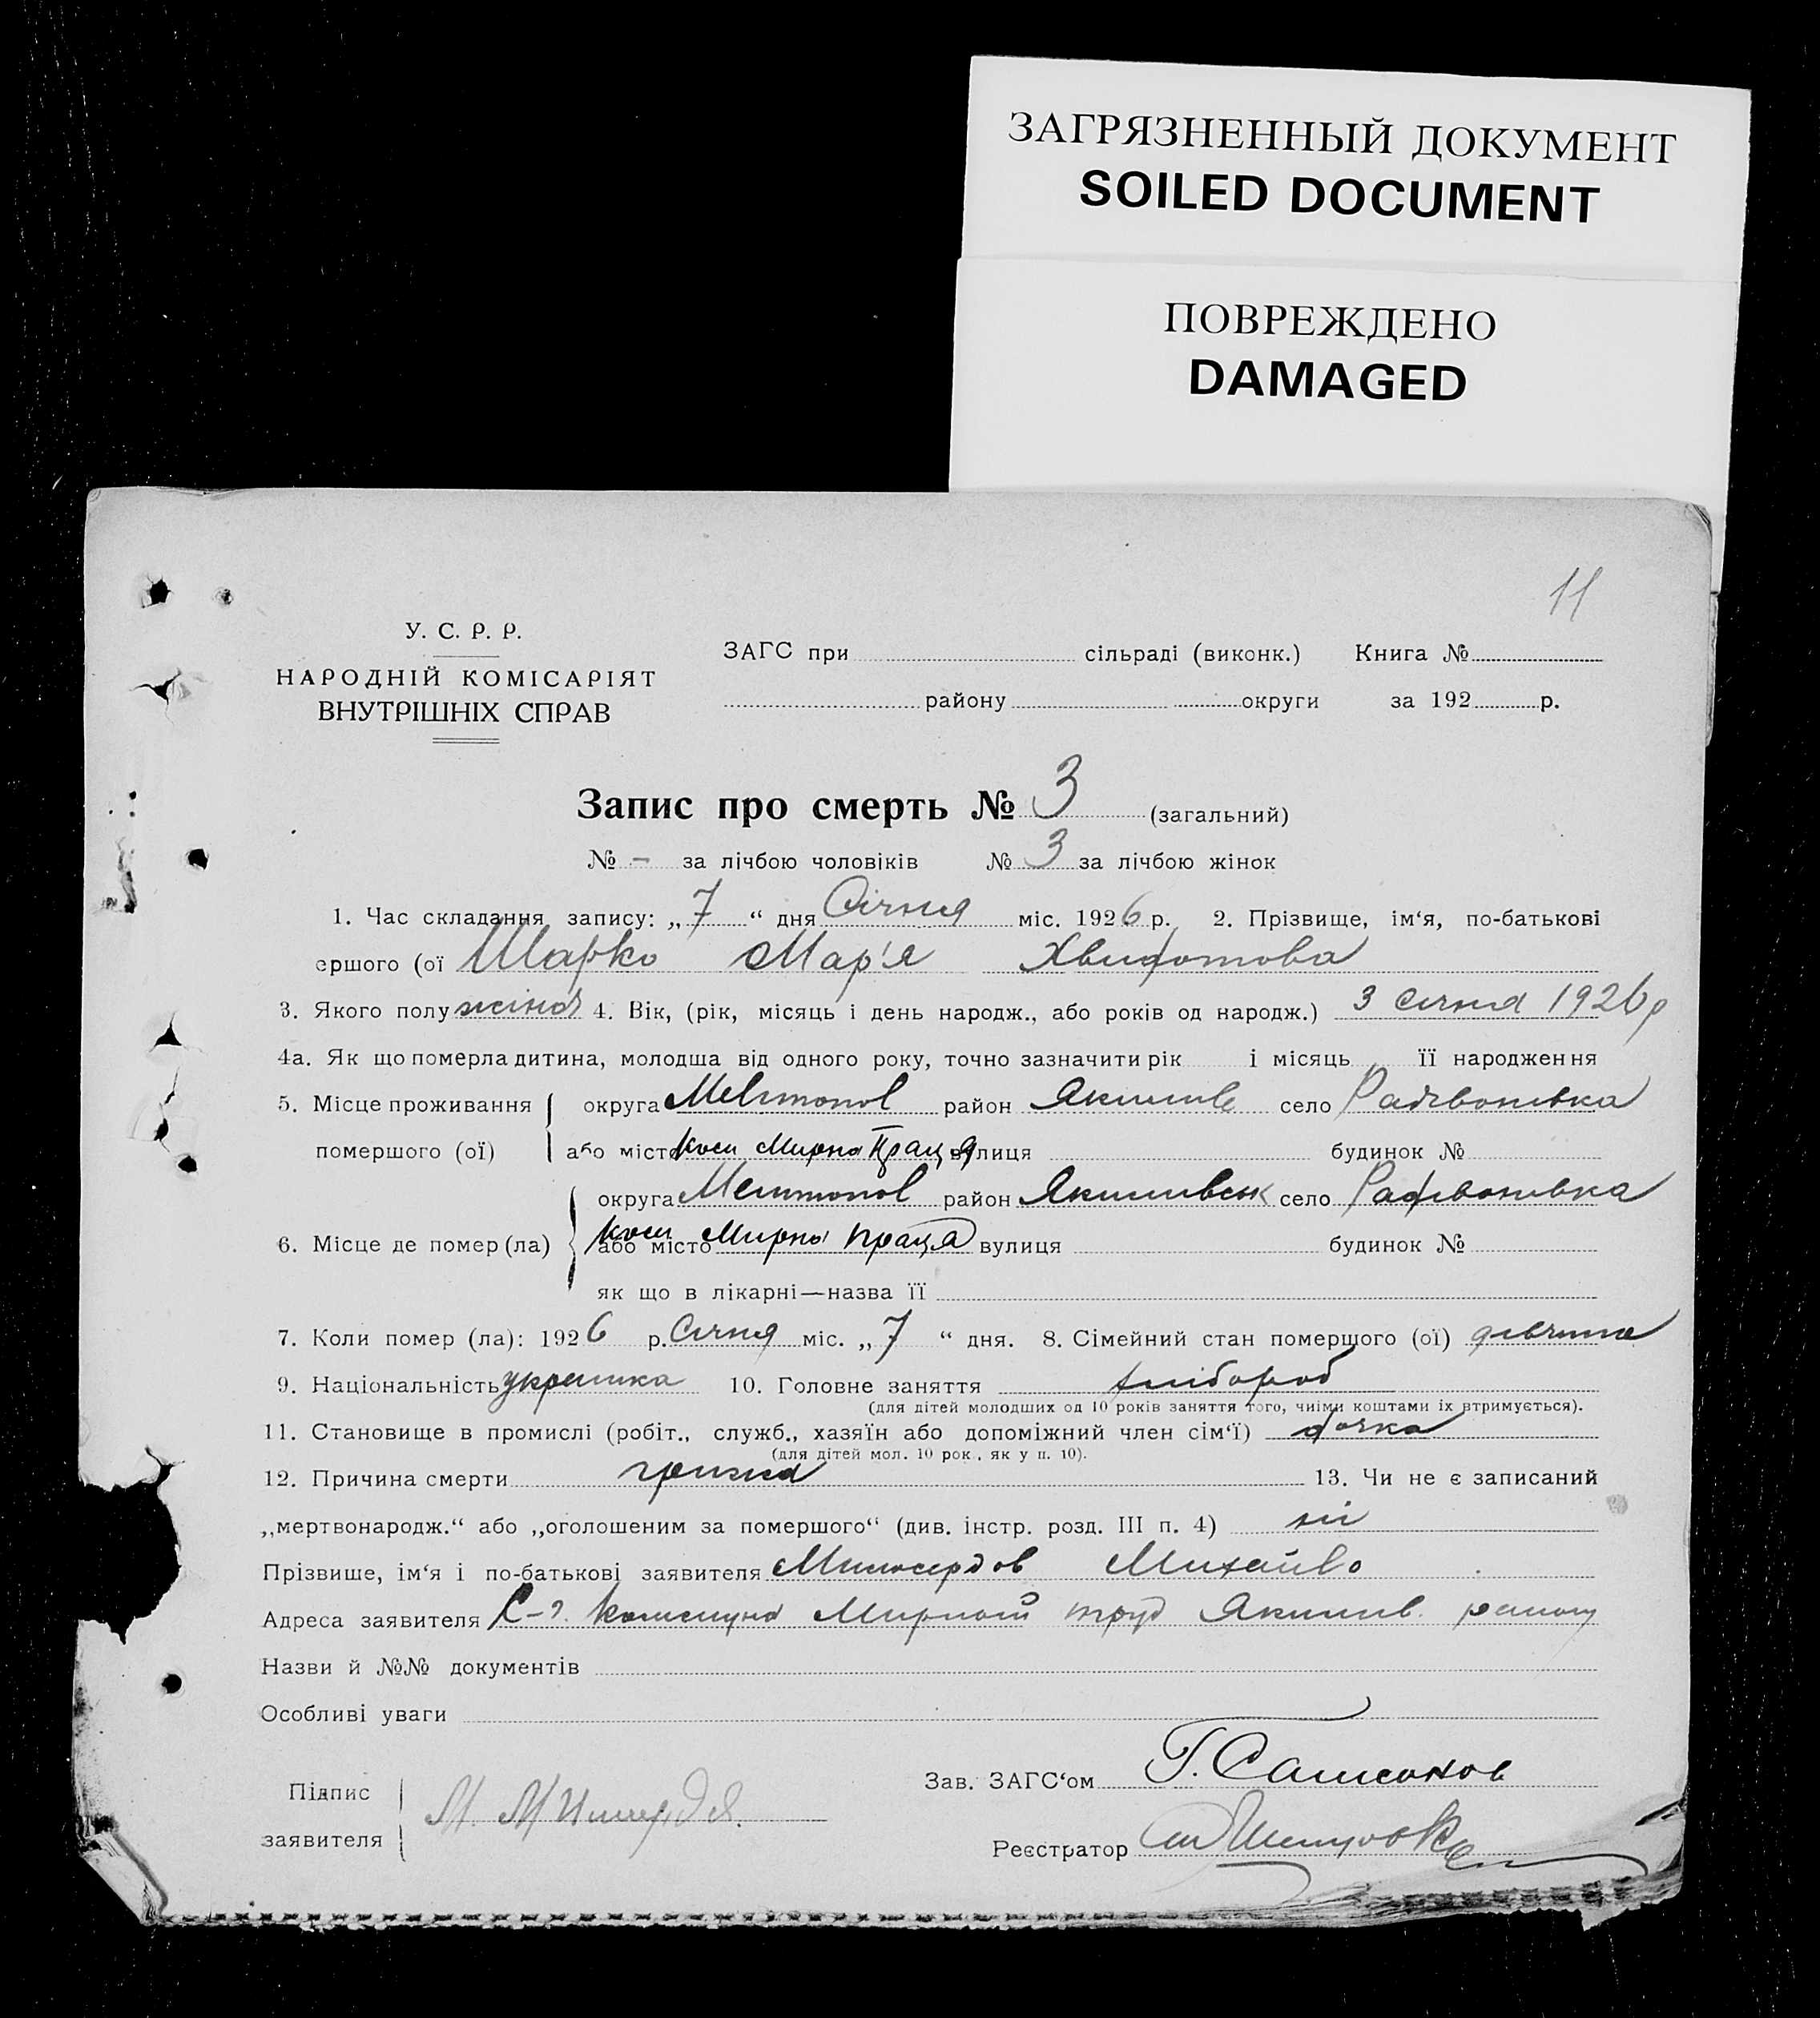 ЗАГРЯЗНЕННЫЙ ДОКУМЕНТ
SOILED DOCUMENT
ПОВРЕЖДЕНО
DAMAGED
11
У. С. Р. Р.
НАРОДНІЙ КОМІСАРІЯТ
ВНУТРІШНІХ СПРАВ
ЗАГС при сільраді (виконк.) Книга №
району округи за 192 р.
Запис про смерть № 3 (загальний)
№ – за лічбою чоловіків № 3 за лічбою жінок
1. Час складання запису: „7“ дня Січня міс. 1926 р. 2. Прізвище, ім‘я, по-батькові
ершого (ої Шарко Мар'я
3. Якого полу жіноч 4. Вік, (рік, місяць і день народж., або років од народж.) 3 січня 1926 р
4а. Як що померла дитина, молодша від одного року, точно зазначити рік і місяць її народження
5. Місце проживання округа район Якимив село Радивонивка
помершого (ої) або місто Мирна Праця вулиця будинок №
6. Місце де помер (ла) округа район Якимивськ село Радивонивка
або місто Мирна праця вулиця будинок №
як що в лікарні—назва її
7. Коли помер (ла): 1926 р. Січня міс. „7“ дня. 8. Сімейний стан помершого (ої) дивчина
9. Національність украинка 10. Головне заняття хлібороб
(для дітей молодших од 10 років заняття того, чиїми коштами їх втримується).
11. Становище в промислі (робіт., служб., хазяїн або допоміжний член сім‘ї) дочка
(для дітей мол. 10 рок., як у п. 10).
12. Причина смерти грижа 13. Чи не є записаний
„мертвонародж.“ або „оголошеним за помершого“ (див. інстр. розд. III п. 4) ні
Прізвише, ім‘я і по-батькові заявителя Милосердов Михайло
Адреса заявителя С-г. комуна Мирный труд Якимив. району
Назви й №№ документів
Особливі уваги
Зав. ЗАГС‘ом Г. Самсонов
Підпис
заявителя
Реєстратор